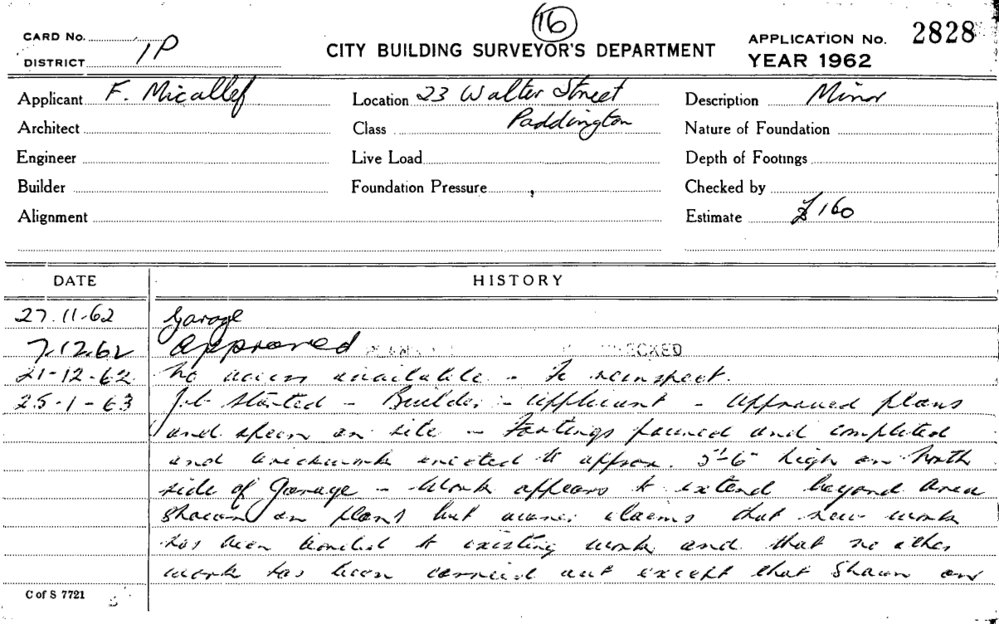 16
CARD No.
DISTRICT 1P
CITY BUILDING SURVEYOR'S DEPARTMENT
APPLICATION No. 2828
YEAR 1962
Applicant F. Micallef
Location 23 Walter Street
Paddington
Description Minor
Architect
Class
Nature of Foundation
Engineer
Live Load
Depth of Footings
Builder
Foundation Pressure
Checked by
Alignment
Estimate £160
DATE HISTORY
27.11.62 Garage
7.12.62 Approved CHECKED
21-12-62 No access available - To reinspect.
25-1-63 Job started - Builder - applicant - approved plans
and specn on site - Footings poured and completed
and brickwork erected to approx. 5'-6" high on North
side of Garage - Work appears to extend beyond area
shown on plans but owner claims that new work
has been bonded to existing work and that no other
work has been carried out except that shown on
C of S 7721